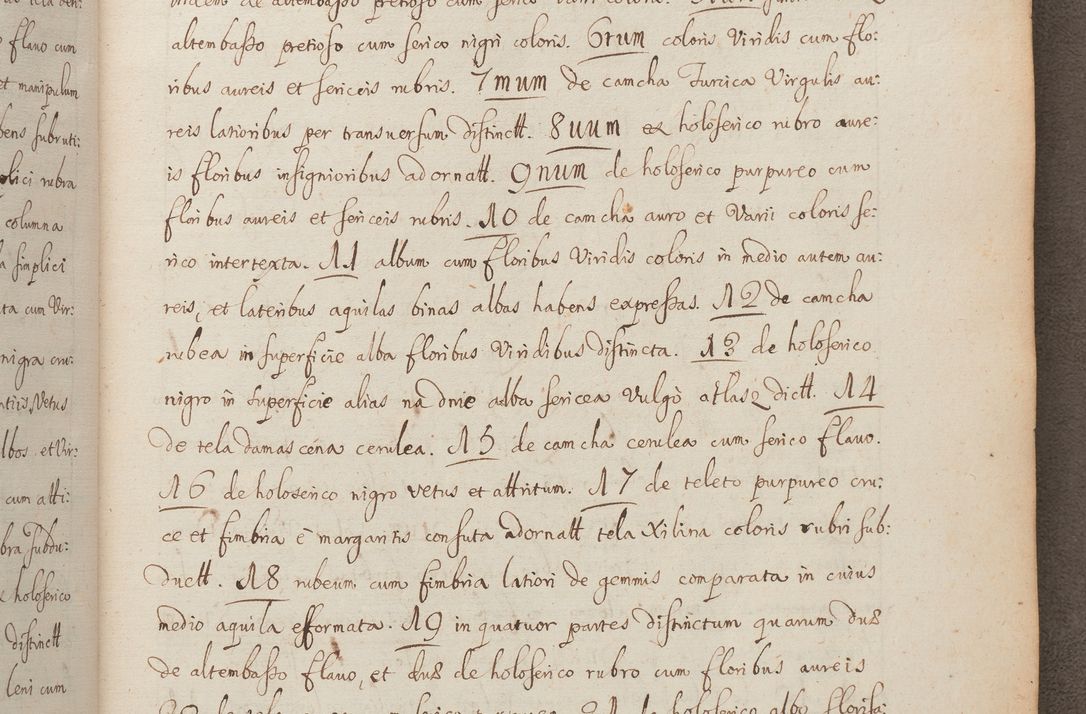 altembaßo pretioso cum serico nigri coloris. 6tum coloris Viridis cum flo:
ribus aureis et sericeis rubris. 7mum de camcha Turcica Virgulis au:
reis latioribus per transuersum distinctt. 8uum ex holoserico rubro aure:
is floribus insignioribus adornatt. 9num de holoserico purpureo cum
floribus aureis et sericeis rubris. 10 de camcha auro et Varii coloris se:
rico intertexta. 11 album cum floribus Viridis coloris in medio autem au:
reis, et lateribus aquilas binas albas habens expreßas. 12 de camcha
rubea in superficie alba floribus Viridibus distincta. 13 de holoserico
nigro in superficie alias na dnie alba sericea Vulgò atlas dictt. 14
de tela damascena cerulea. 15 de camcha cerulea cum serico flauo.
16 de holoserico nigro vetus et attritum. 17 de teleto purpureo cru:
ce et fimbria è margaritis consuta adornatt tela Xilina coloris rubri sub:
ductt. 18 rubeum cum fimbria latiori de gemmis comparata in cuius
medio aquila efformata. 19 in quatuor partes distinctum quarum duæ
de altembaßo flauo, et duæ de holoserico rubro cum floribus aureis
flauo cum
et manipulum
bens subruti:
plici rubra
columna
simplici
ta cum Vir:
nigra cru:
Vetus
lbos et Vir:
cum atti:
bra subdu:
holoserico
distinctt
leni cum